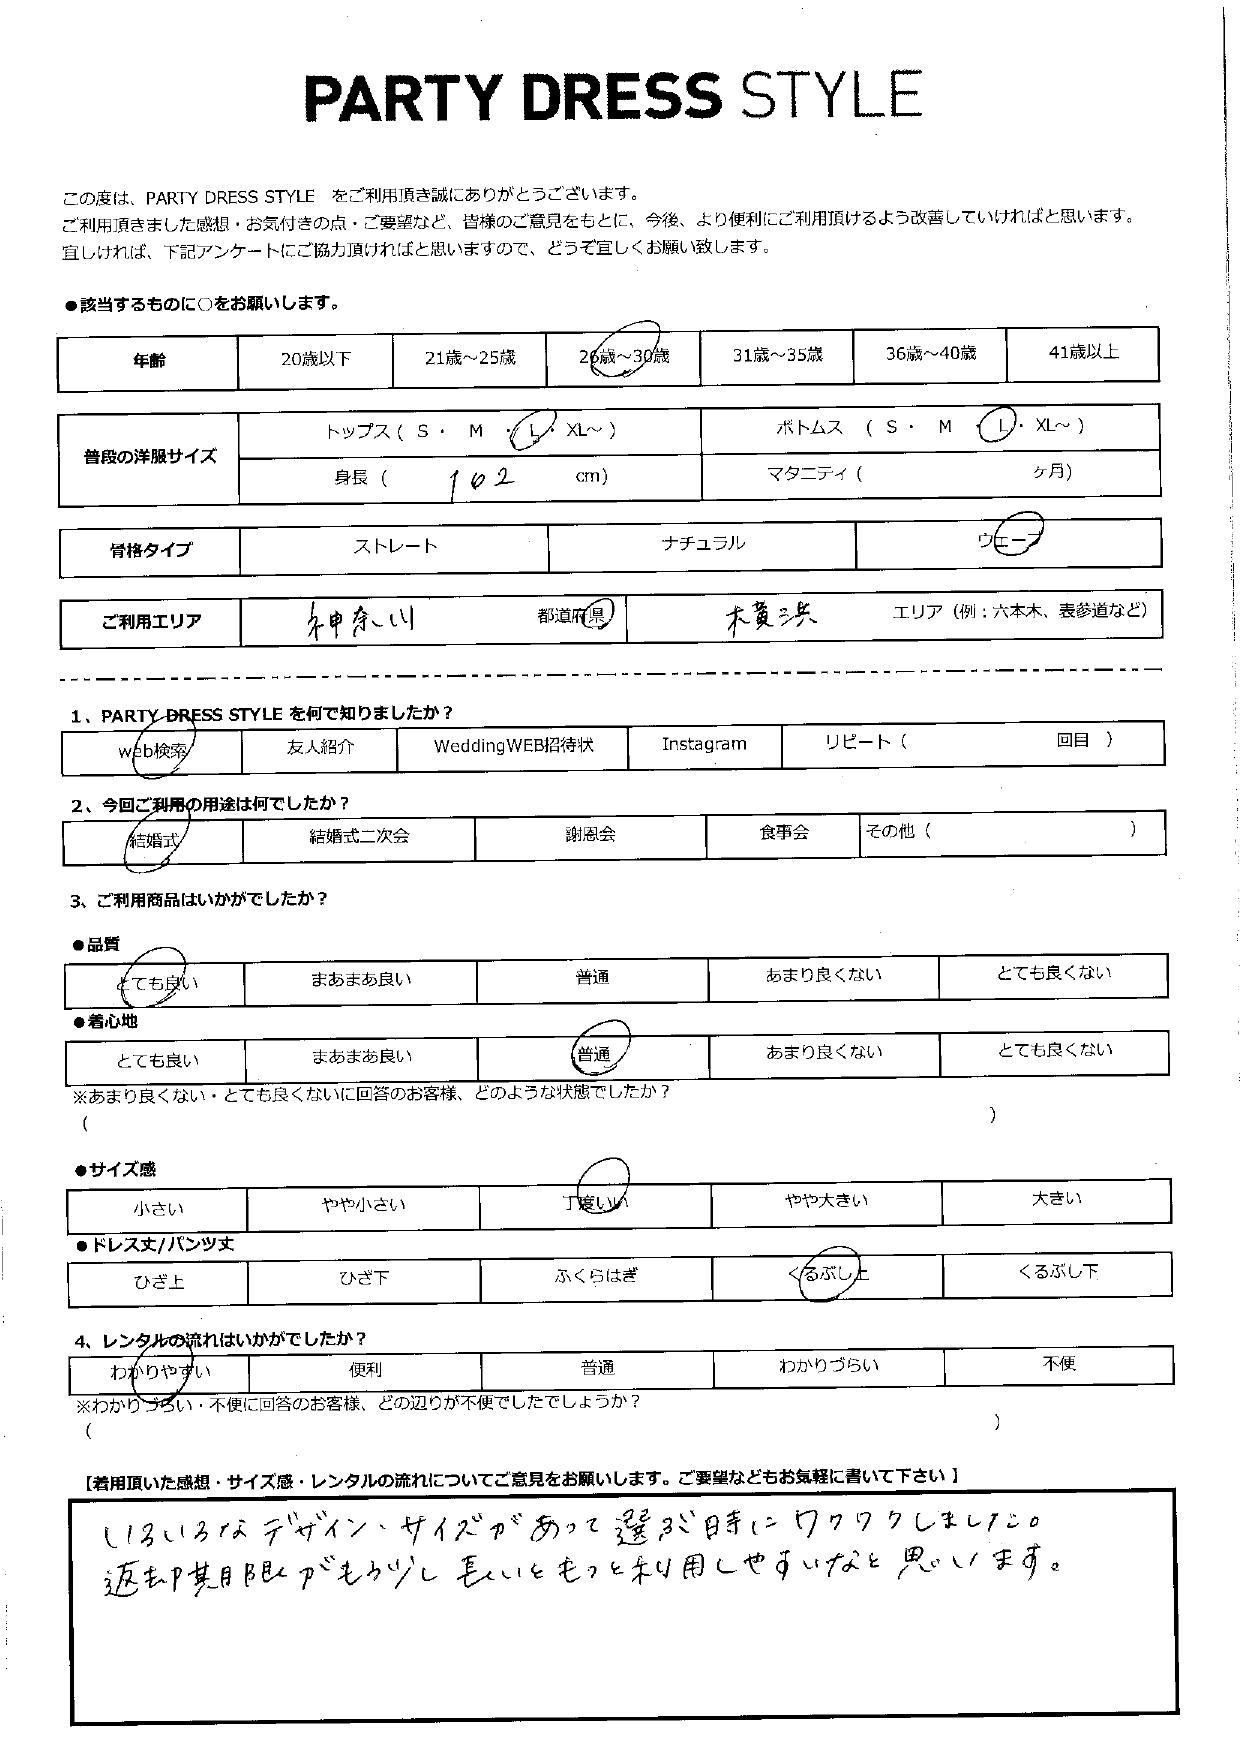 PARTY DRESS STYLE
この度は、PARTY DRESS STYLE をご利用頂き誠にありがとうございます。
ご利用頂きました感想・お気付きの点・ご要望など、皆様のご意見をもとに、今後、より便利にご利用頂けるよう改善していければと思います。
宜しければ、下記アンケートにご協力頂ければと思いますので、どうぞ宜しくお願い致します。
●該当するものに○をお願いします。
年齢 20歳以下 21歳～25歳 26歳～30歳 31歳～35歳 36歳～40歳 41歳以上
普段の洋服サイズ トップス ( S ・ M ・ L ・ XL～ ) ボトムス ( S ・ M ・ L ・ XL～ )
身長 ( 162 cm) マタニティ ( ヶ月)
骨格タイプ ストレート ナチュラル ウェーブ
ご利用エリア 神奈川 都道府県 横浜 エリア（例：六本木、表参道など）
1、PARTY DRESS STYLE を何で知りましたか？
web検索 友人紹介 WeddingWEB招待状 Instagram リピート ( 回目 )
2、今回ご利用の用途は何でしたか？
結婚式 結婚式二次会 謝恩会 食事会 その他 ( )
3、ご利用商品はいかがでしたか？
●品質
とても良い まあまあ良い 普通 あまり良くない とても良くない
●着心地
とても良い まあまあ良い 普通 あまり良くない とても良くない
※あまり良くない・とても良くないに回答のお客様、どのような状態でしたか？
( )
●サイズ感
小さい やや小さい 丁度いい やや大きい 大きい
●ドレス丈/パンツ丈
ひざ上 ひざ下 ふくらはぎ くるぶし上 くるぶし下
4、レンタルの流れはいかがでしたか？
わかりやすい 便利 普通 わかりづらい 不便
※わかりづらい・不便に回答のお客様、どの辺りが不便でしたでしょうか？
( )
【着用頂いた感想・サイズ感・レンタルの流れについてご意見をお願いします。ご要望などもお気軽に書いて下さい 】
いろいろなデザイン・サイズがあって選ぶ時にワクワクしました。
返却期限がもう少し長いともっと利用しやすいなと思います。